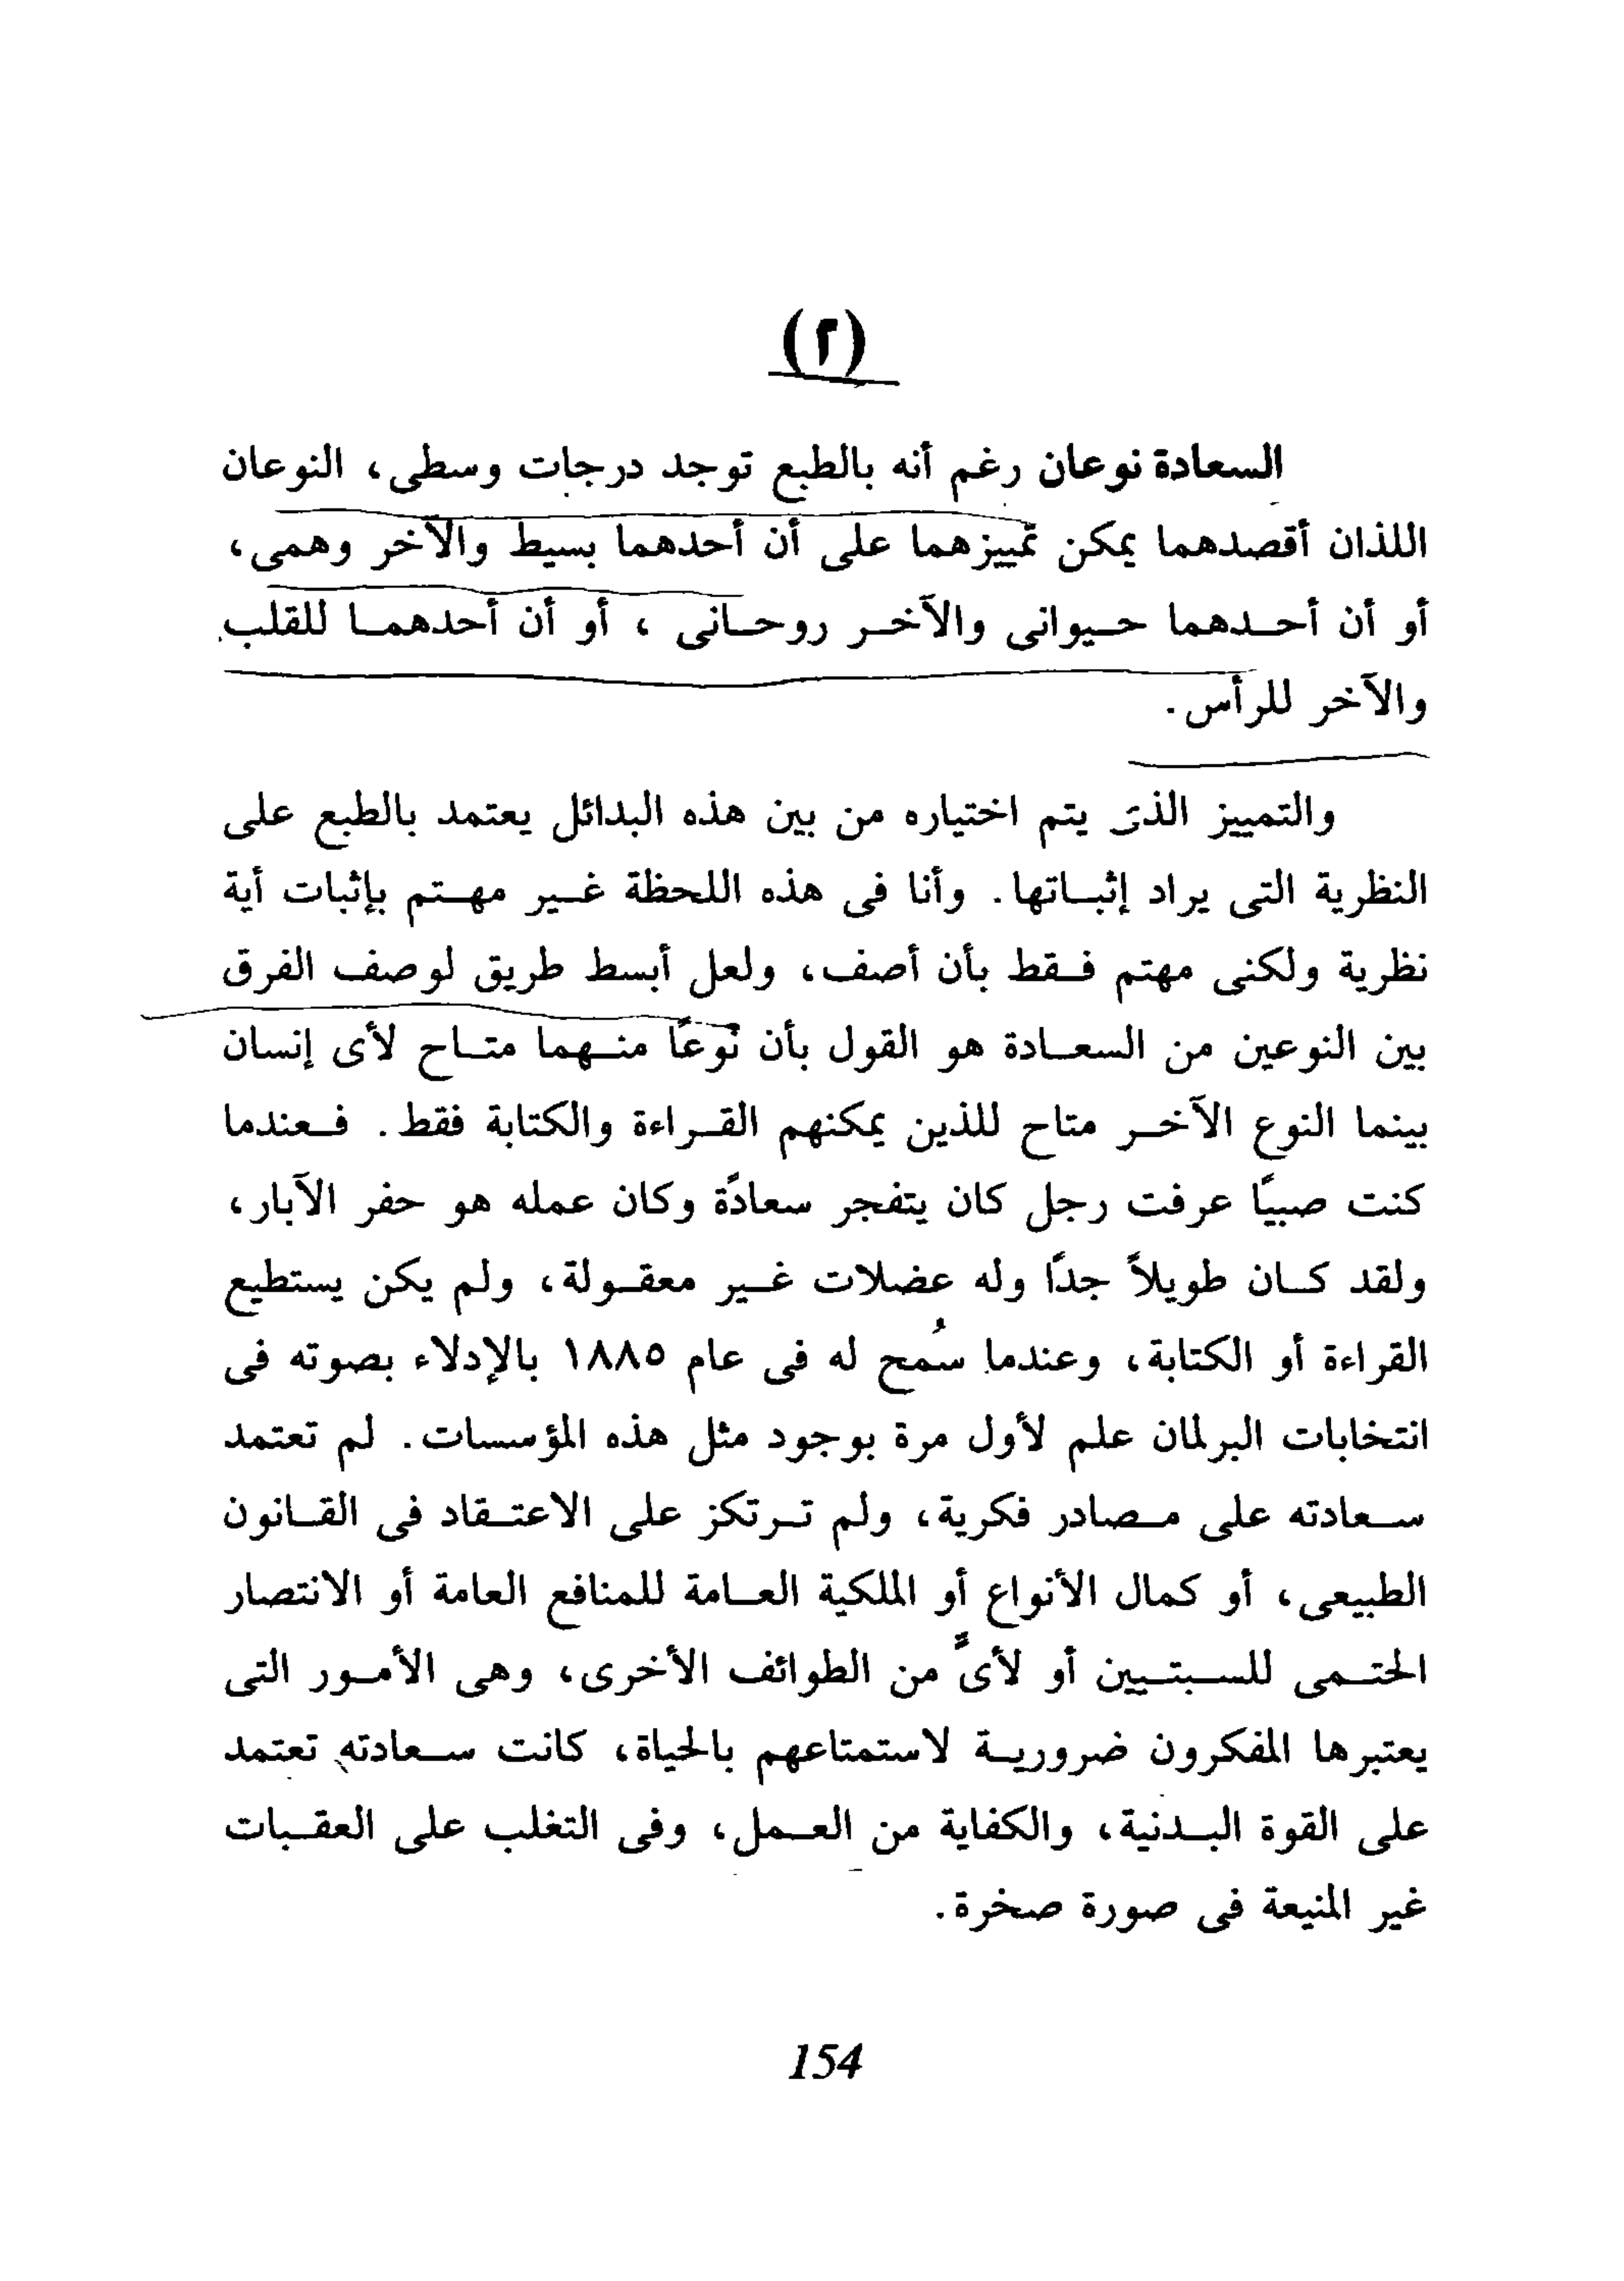 (٢)
السعادة نوعان رغم أنه بالطبع توجد درجات وسطى، النوعان
اللذان أقصدهما يمكن تمييزهما على أن أحدهما بسيط والآخر وهمى،
أو أن أحدهما حيوانى والآخر روحانى ، أو أن أحدهما للقلب
والآخر للرأس.
والتمييز الذى يتم اختياره من بين هذه البدائل يعتمد بالطبع على
النظرية التى يراد إثباتها. وأنا فى هذه اللحظة غير مهتم بإثبات أية
نظرية ولكنى مهتم فقط بأن أصف، ولعل أبسط طريق لوصف الفرق
بين النوعين من السعادة هو القول بأن نوعًا منهما متاح لأى إنسان
بينما النوع الآخر متاح للذين يمكنهم القراءة والكتابة فقط. فعندما
كنت صبيًا عرفت رجل كان يتفجر سعادةً وكان عمله هو حفر الآبار،
ولقد كان طويلاً جدًا وله عضلات غير معقولة، ولم يكن يستطيع
القراءة أو الكتابة، وعندما سُمح له فى عام ١٨٨٥ بالإدلاء بصوته فى
انتخابات البرلمان علم لأول مرة بوجود مثل هذه المؤسسات. لم تعتمد
سعادته على مصادر فكرية، ولم ترتكز على الاعتقاد فى القانون
الطبيعى، أو كمال الأنواع أو الملكية العامة للمنافع العامة أو الانتصار
الحتمى للسبتيين أو لأىٍّ من الطوائف الأخرى، وهى الأمور التى
يعتبرها المفكرون ضرورية لاستمتاعهم بالحياة، كانت سعادته تعتمد
على القوة البدنية، والكفاية من العمل، وفى التغلب على العقبات
غير المنيعة فى صورة صخرة.
154